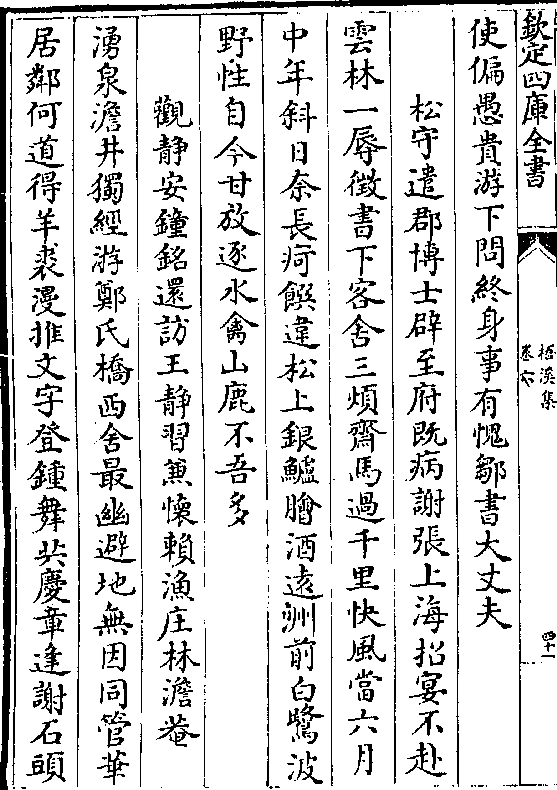 欽定四庫全書
梧溪集
卷六
四十一
使偏愚貴游下問終身事有愧鄒書大丈夫
松守遣郡博士辟至府既病謝張上海招宴不赴
雲林一辱徵書下客舍三煩齋馬過千里快風當六月
中年斜日奈長疴饌違松上銀鱸膾酒遠洲前白鷺波
野性自今甘放逐水禽山鹿不吾多
觀静安鐘銘還訪王静習兼懷賴漁庄林澹菴
湧泉澹井獨經游鄭氏橋西舍最幽避地無因同管華
居鄰何道得羊裘漫推文字登鍾舞共慶章逢謝石頭